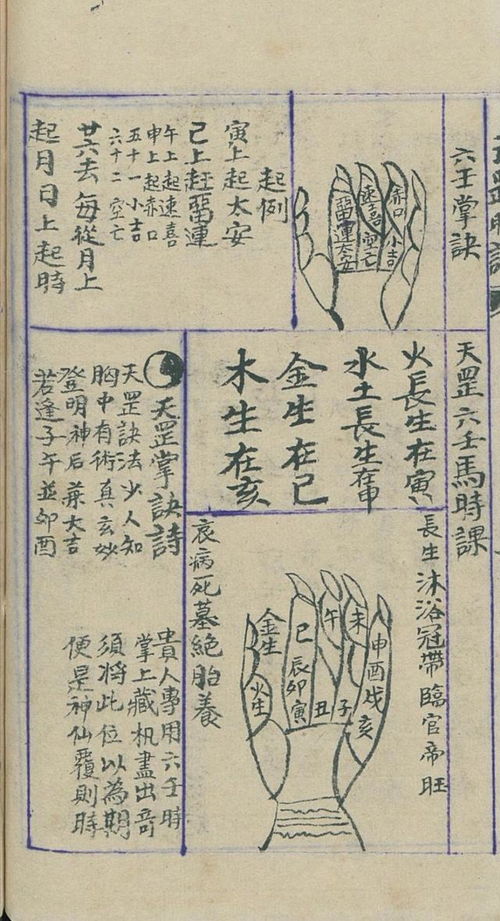 六壬掌訣
赤口
小吉
速喜
空亡
畱連
大安
起例
寅上起太安
巳上赶畱連
午上起速喜
申上起赤口
五十一小吉
六十二空亡
廿六去每從月上
起月日上起時
天罡六壬馬時課
火長生在寅
水土長生在申
金生在巳
木生在亥
長生沐浴冠帶臨官帝旺
未
申酉戌亥
午
子
丑
巳辰卯寅
金生
火生
衰病死墓絶胎養
天罡掌訣詩
天罡訣法少人知
胸中有術真玄妙
登明神后兼大吉
若逢子午並卯酉
貴人專用六壬時
掌上藏机盡出奇
須將此位以為期
便是神仙覆則時